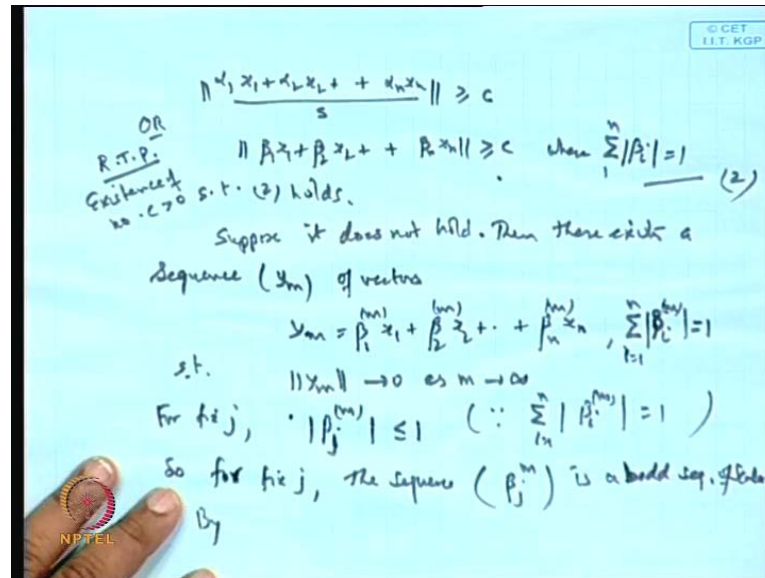 © CET
I.I.T. KGP
|| α₁x₁ + α₂x₂ + + αₙxₙ / s || ≥ c
OR
R.T.P. || β₁x₁ + β₂x₂ + + βₙxₙ || ≥ c where Σ₁ⁿ |βᵢ| = 1 — (2)
Existence of
no. c > 0 s.t. (2) holds.
Suppose it does not hold. Then there exists a
sequence (yₘ) of vectors
yₘ = β₁⁽ᵐ⁾x₁ + β₂⁽ᵐ⁾x₂ + .. + βₙ⁽ᵐ⁾xₙ , Σᵢ₌₁ⁿ |βᵢ⁽ᵐ⁾| = 1
s.t. ||yₘ|| → 0 as m → ∞
For fix j, |βⱼ⁽ᵐ⁾| ≤ 1 (∵ Σᵢ₌₁ⁿ |βᵢ⁽ᵐ⁾| = 1 )
So for fix j, the sequence (βⱼᵐ) is a bdd seq. of Scala
By
NPTEL